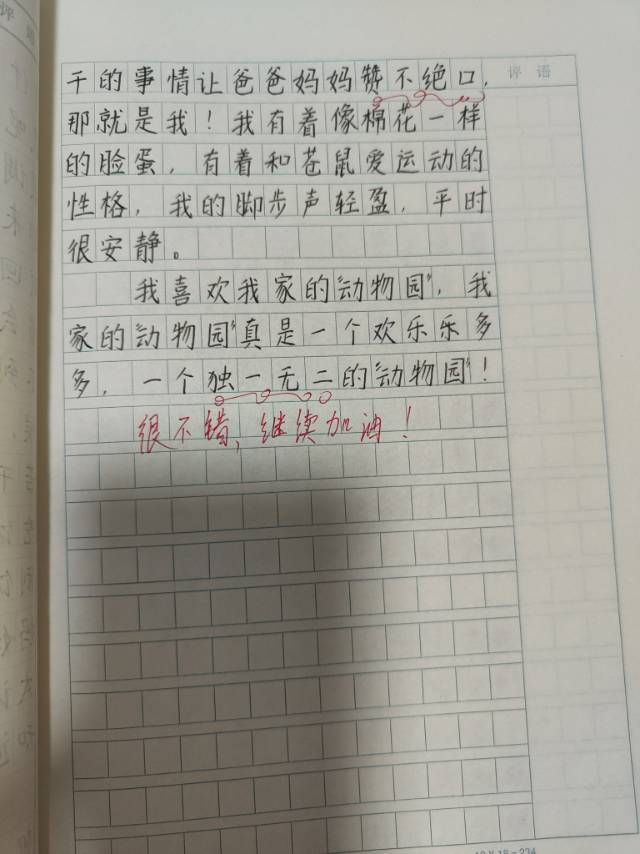 评语
干的事情让爸爸妈妈赞不绝口，
那就是我！我有着像棉花一样
的脸蛋，有着和苍鼠爱运动的
性格，我的脚步声轻盈，平时
很安静。
我喜欢我家的“动物园”，我
家的“动物园”真是一个欢乐乐多
多，一个独一无二的“动物园”！
很不错，继续加油！